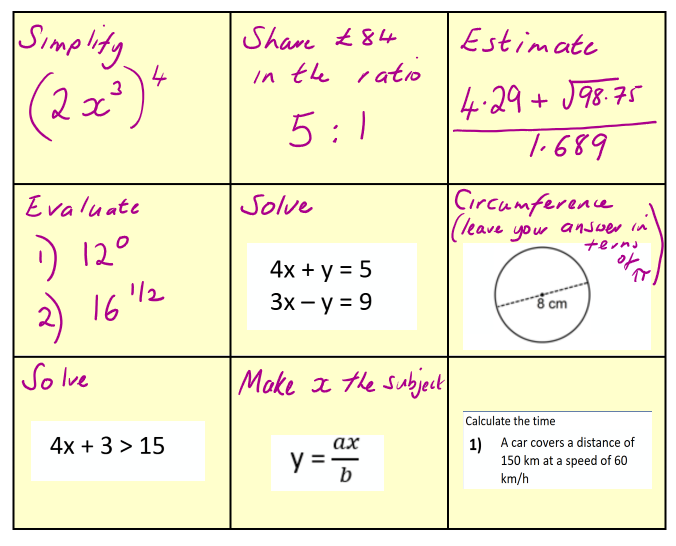 Simplify
(2x³)⁴
Share £84
in the ratio
5 : 1
Estimate
4.29 + √98.75
1.689
Evaluate
1) 12⁰
2) 16^1/2
Solve
4x + y = 5
3x – y = 9
Circumference
(leave your answer in
terms
of
π)
8 cm
Solve
4x + 3 > 15
Make x the subject
y = ax/b
Calculate the time
1) A car covers a distance of
150 km at a speed of 60
km/h